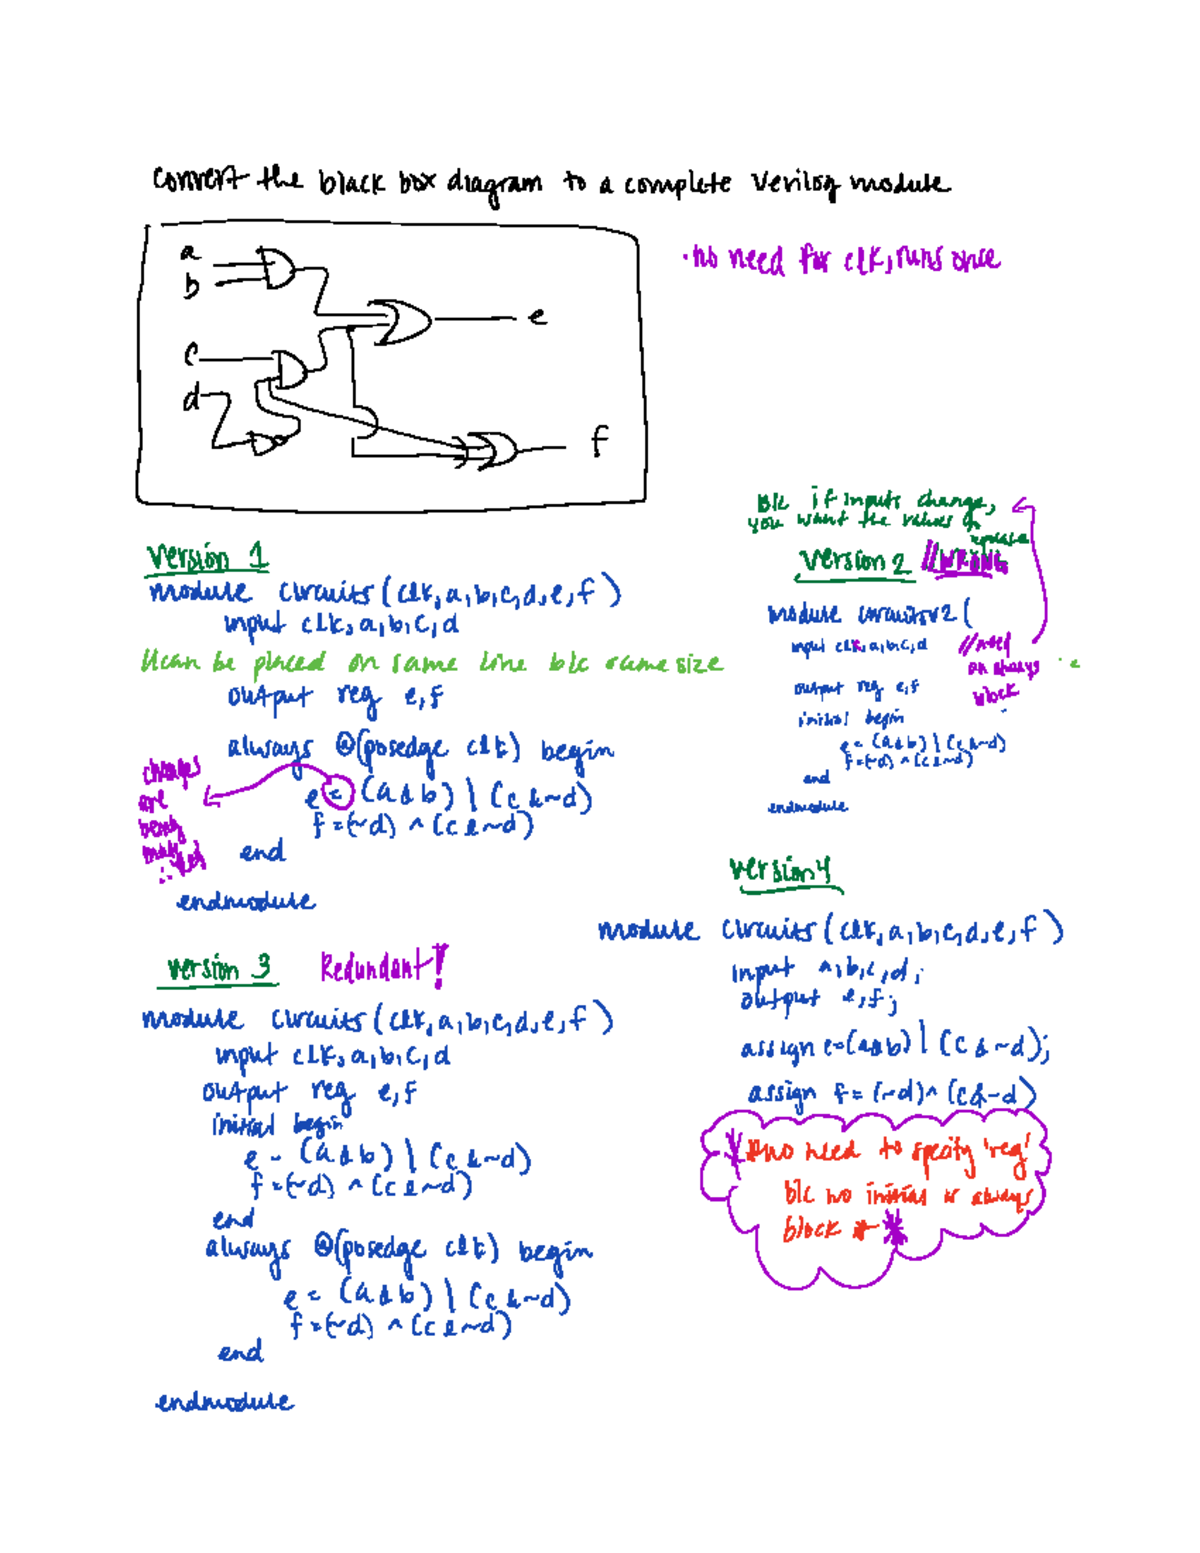 convert the black box diagram to a complete Verilog module
• no need for clk, runs once
a
b
c
d
e
f
Version 1
module circuits (clk, a, b, c, d, e, f)
input clk, a, b, c, d
//can be placed on same line b/c same size
output reg e, f
always @(posedge clk) begin
e = (a & b) | (c & ~d)
f = (~d) ^ (c & ~d)
end
endmodule
changes
are
being
b/c if inputs change,
you want the values to
update
Version 2 //WRONG
module circuitsv2 (
input clk, a, b, c, d //need
an always
block
output reg e, f
initial begin
e = (a & b) | (c & ~d)
f = (~d) ^ (c & ~d)
end
endmodule
version 3 Redundant!
module circuits (clk, a, b, c, d, e, f)
input clk, a, b, c, d
output reg e, f
initial begin
e = (a & b) | (c & ~d)
f = (~d) ^ (c & ~d)
end
always @(posedge clk) begin
e = (a & b) | (c & ~d)
f = (~d) ^ (c & ~d)
end
endmodule
version 4
module circuits (clk, a, b, c, d, e, f)
input a, b, c, d;
output e, f;
assign e = (a & b) | (c & ~d);
assign f = (~d) ^ (c & ~d)
*no need to specify 'reg'
b/c no initial or always
block *